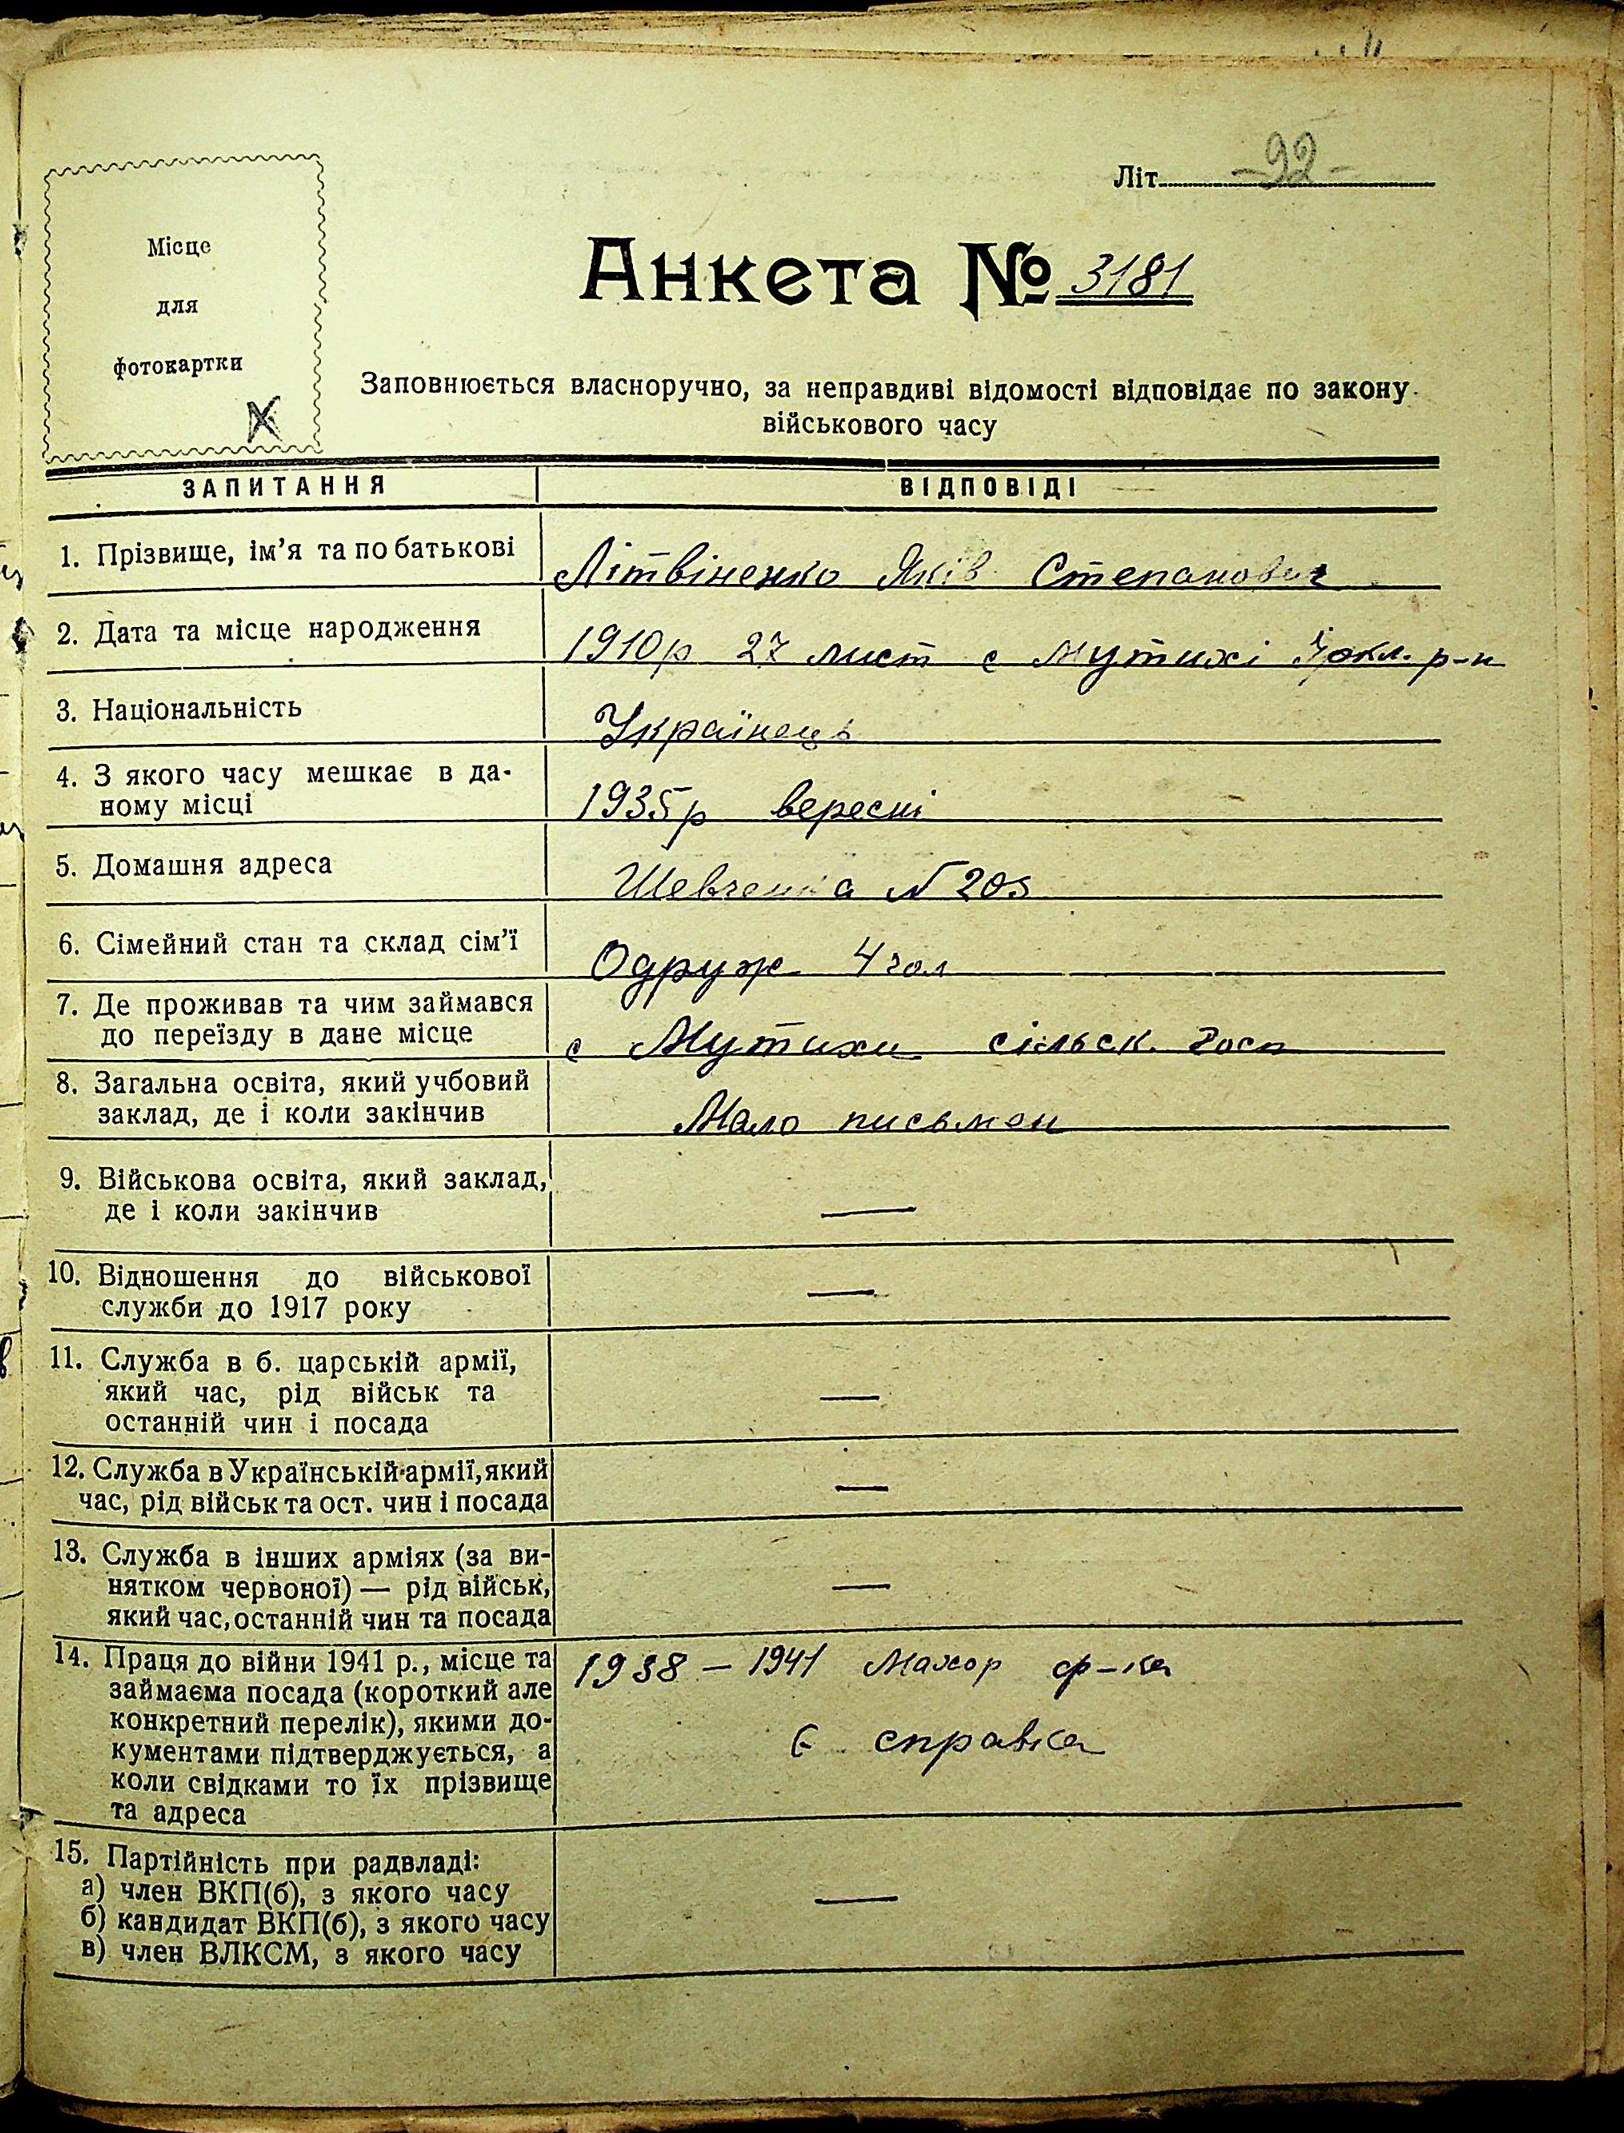 Літ. -92-
Місце
для
фотокартки
Анкета № 3181
Заповнюється власноручно, за неправдиві відомості відповідає по закону
військового часу
ЗАПИТАННЯ ВІДПОВІДІ
1. Прізвище, ім'я та по батькові Літвіненко Яків Степанович
2. Дата та місце народження 1910р 27 лист с Мутихі р-н
3. Національність Українець
4. З якого часу мешкає в да-
ному місці 1935р вересні
5. Домашня адреса Шевченка N 205
6. Сімейний стан та склад сім'ї Одруж 4 чол
7. Де проживав та чим займався
до переїзду в дане місце с Мутихи сільск. госп
8. Загальна освіта, який учбовий
заклад, де і коли закінчив Мало письмен
9. Військова освіта, який заклад,
де і коли закінчив —
10. Відношення до військової
служби до 1917 року —
11. Служба в б. царській армії,
який час, рід військ та
останній чин і посада —
12. Служба в Українській армії, який
час, рід військ та ост. чин і посада —
13. Служба в інших арміях (за ви-
нятком червоної) — рід військ,
який час, останній чин та посада —
14. Праця до війни 1941 р., місце та 1938 – 1941 Махор ф-ка
займаєма посада (короткий але
конкретний перелік), якими до- Є справка
кументами підтверджується, а
коли свідками то їх прізвище
та адреса
15. Партійність при радвладі:
а) член ВКП(б), з якого часу —
б) кандидат ВКП(б), з якого часу
в) член ВЛКСМ, з якого часу